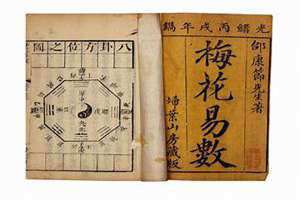 光緒丙戌年鐫
邵康節先生著
梅花易數
掃葉山房藏板
八卦方位之圖